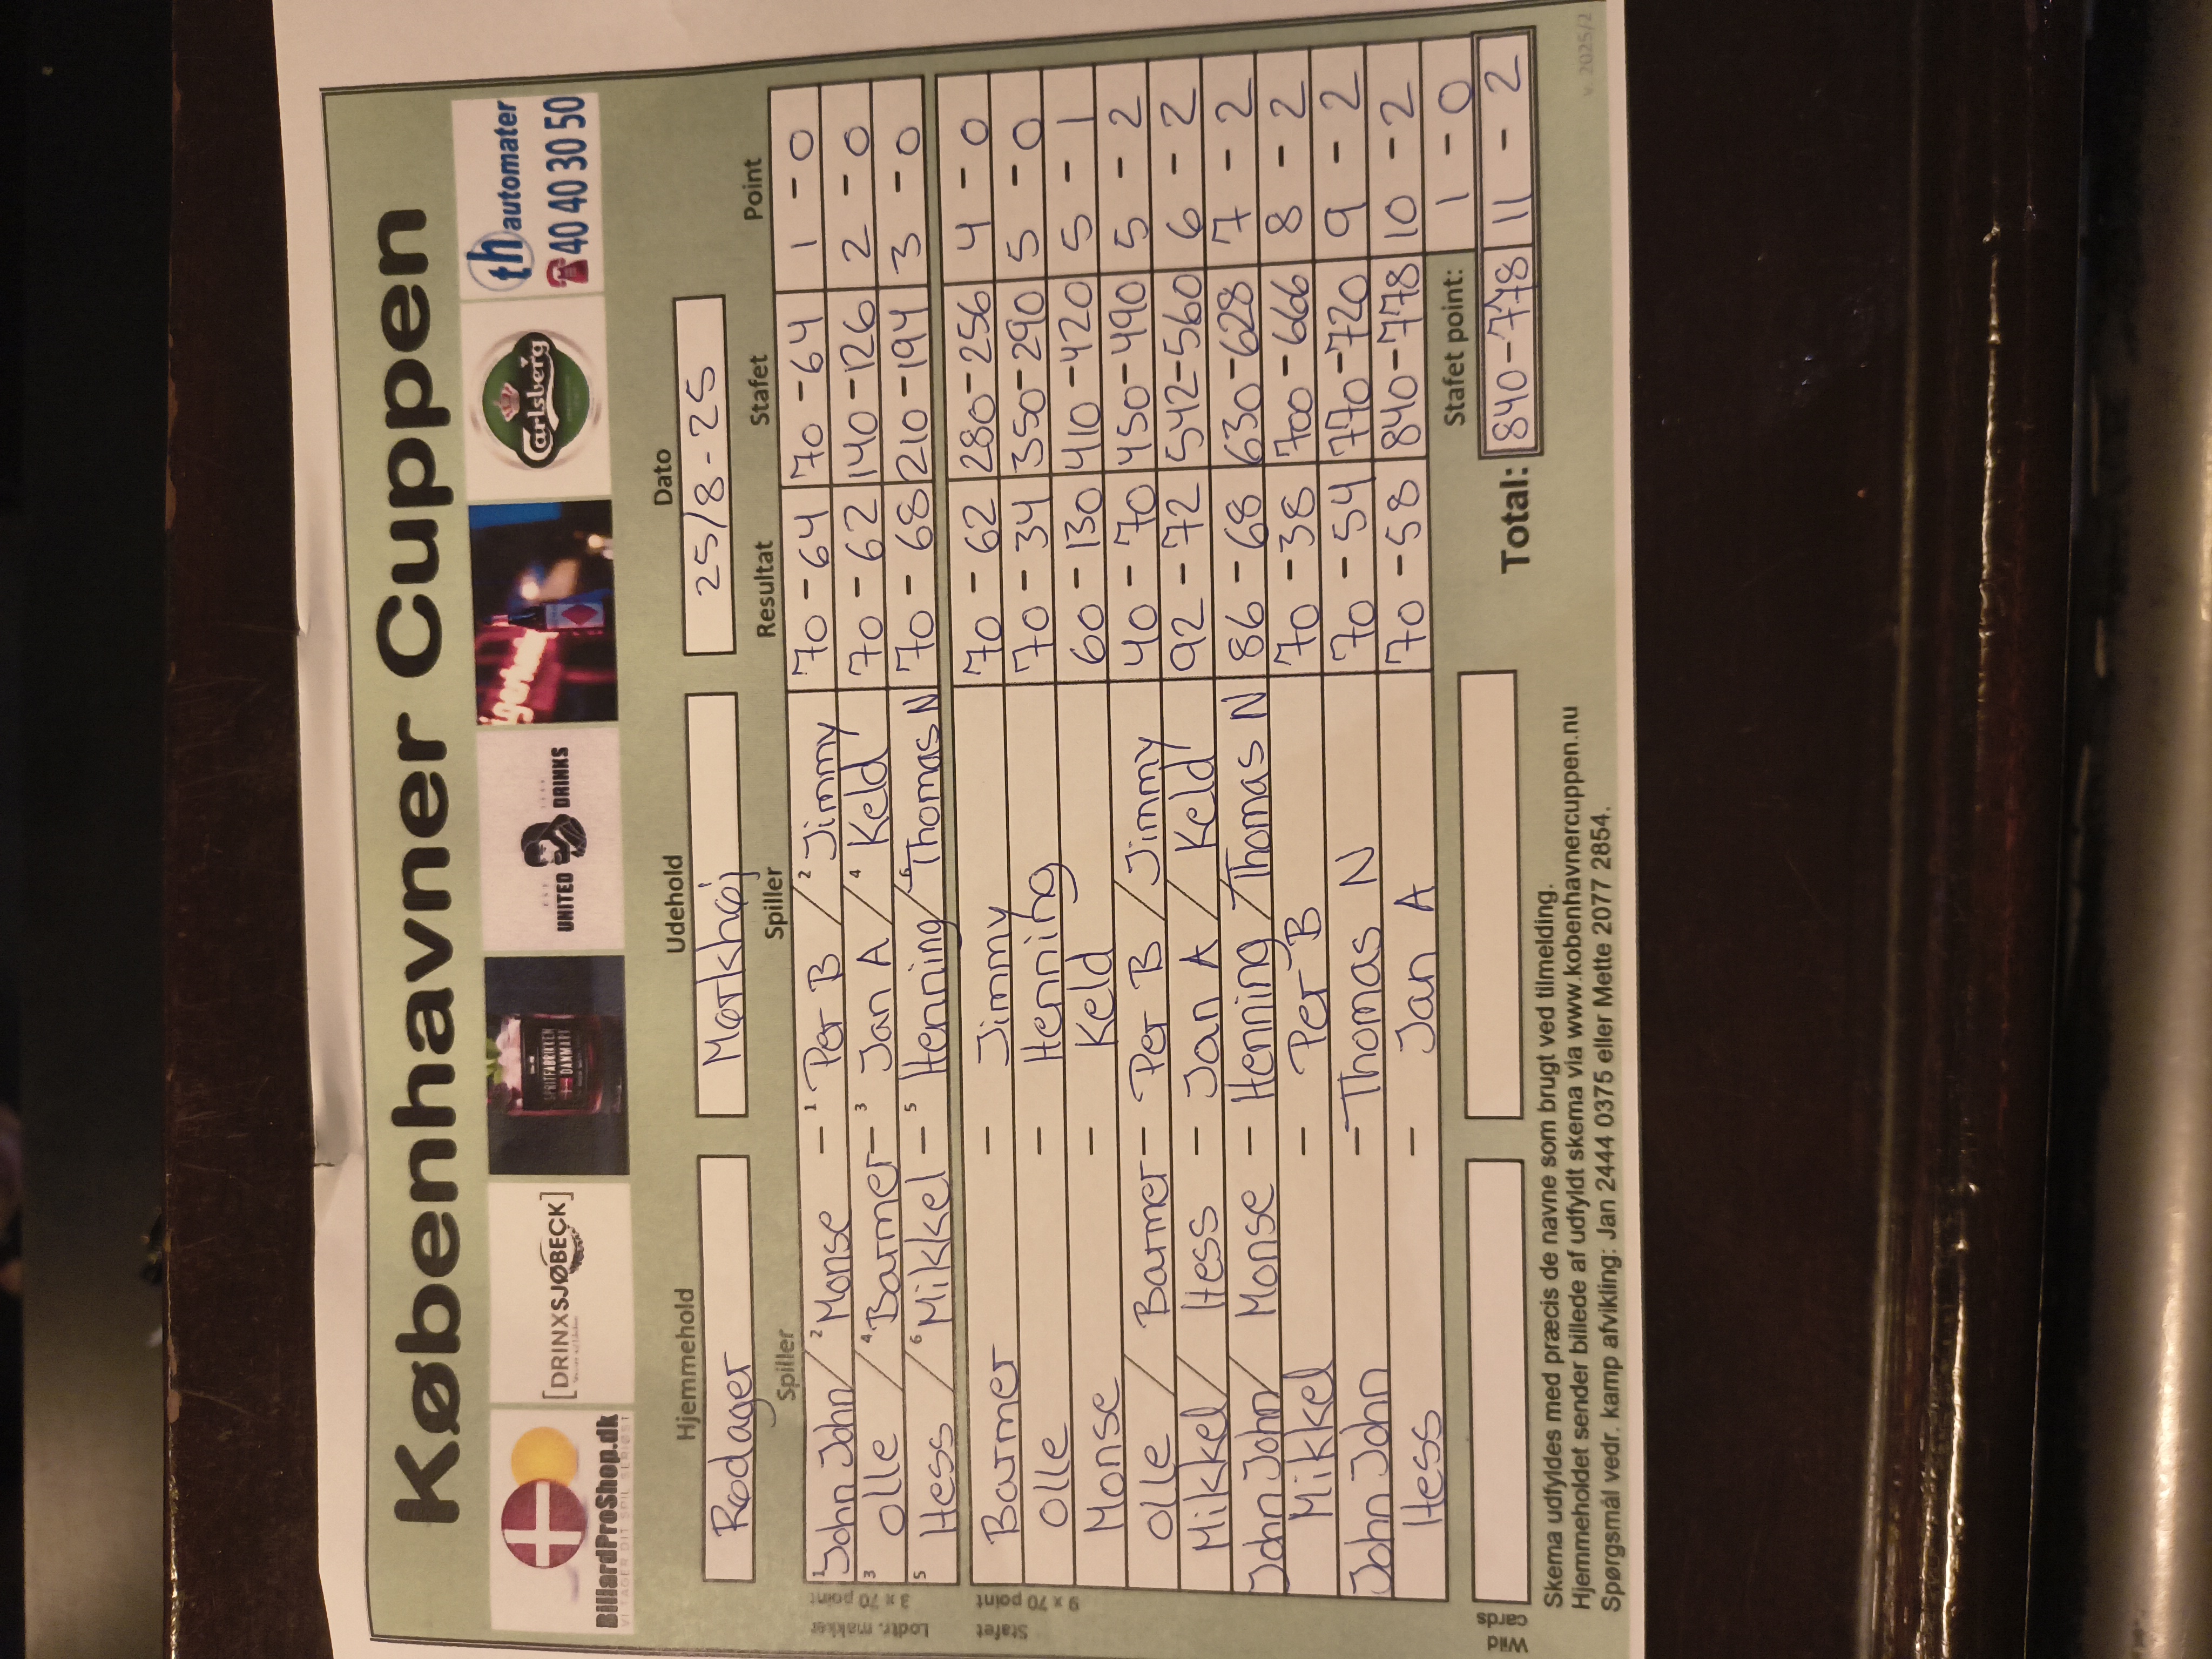 Københavner Cuppen
BilliardProShop.dk
VI TAGER DIT SPIL SERIØST
[DRINXSJØBECK]
SPRITFABRIKKEN
DANMARK
UNITED DRINKS
Carlsberg
th automater
40 40 30 50
Hjemmehold Udehold Dato
Rødager Mørkhøj 25/8-25
Spiller Spiller Resultat Stafet Point
Lodtr. makker
3 x 70 point
1 John John / 2 Monse - 1 Per B / 2 Jimmy 70-64 70-64 1-0
3 Olle / 4 Barmer - 3 Jan A / 4 Keld 70-62 140-126 2-0
5 Hess / 6 Mikkel - 5 Henning / 6 Thomas N 70-68 210-194 3-0
Stafet
9 x 70 point
Barmer - Jimmy 70-62 280-256 4-0
Olle - Henning 70-34 350-290 5-0
Monse - Keld 60-130 410-420 5-1
Olle / Barmer - Per B / Jimmy 40-70 450-490 5-2
Mikkel / Hess - Jan A / Keld 92-72 542-560 6-2
John John / Monse - Henning / Thomas N 86-68 630-628 7-2
Mikkel - Per B 70-38 700-666 8-2
John John - Thomas N 70-54 770-720 9-2
Hess - Jan A 70-58 840-778 10-2
Stafet point: 1-0
Wild cards
Total: 840-778 11-2
Skema udfyldes med præcis de navne som brugt ved tilmelding.
Hjemmeholdet sender billede af udfyldt skema via www.kobenhavnercuppen.nu
Spørgsmål vedr. kamp afvikling: Jan 2444 0375 eller Mette 2077 2854.
v. 2025/2